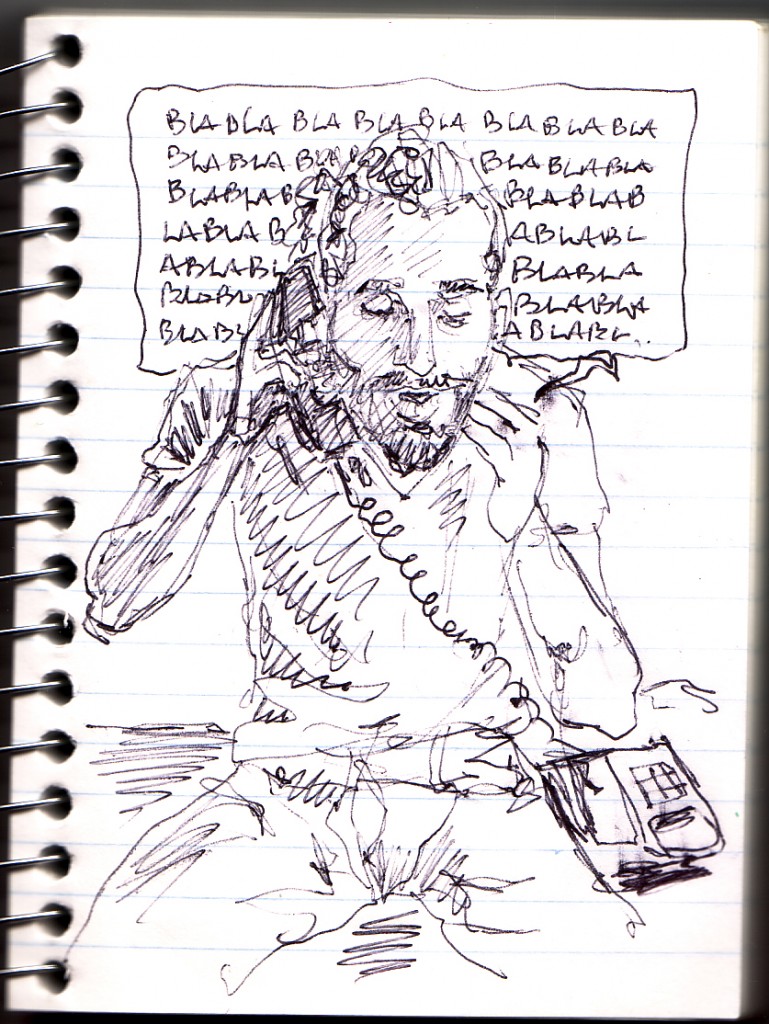 BLA BLA BLA BLA BLA BLA BLA BLA
BLA BLA BLA BLA BLA BLA
BLABLAB BLABLAB
LABLAB ABLABL
ABLABL BLABLA
BLABL BLABLA
BLABL ABLABL..